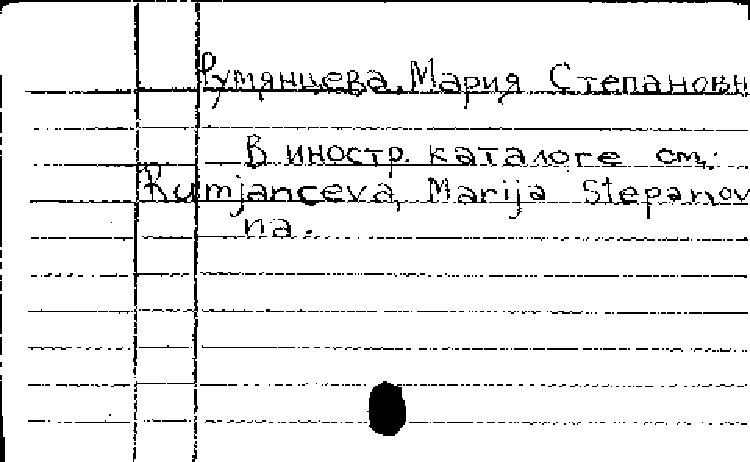 Румянцева, Мария Степановн
В иностр. каталоге см:
Rumjanceva, Marija Stepanov
na.